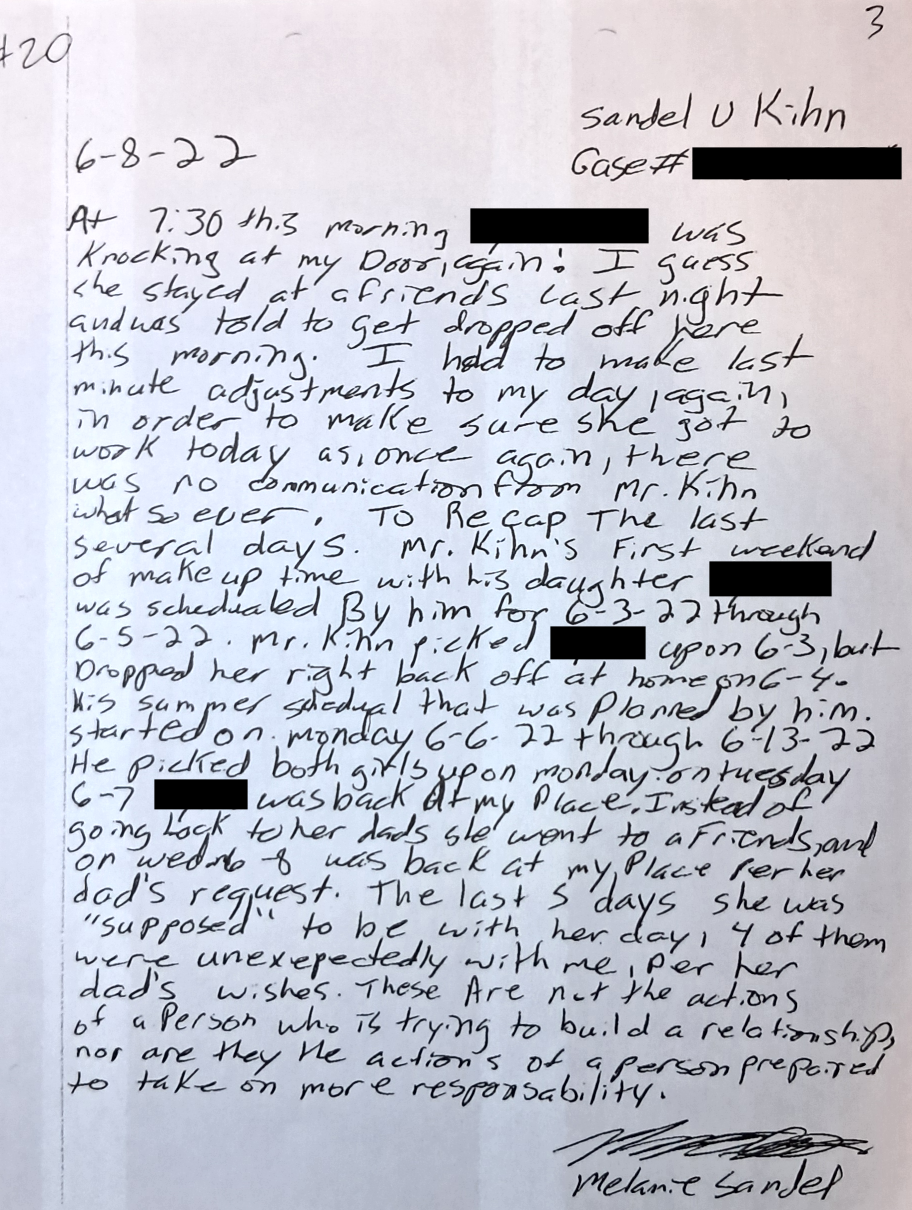 3
#20
Sandel v Kihn
6-8-22
Case #
At 7:30 this morning was
Knocking at my Door, again! I guess
she stayed at a friends last night
and was told to get dropped off here
this morning. I had to make last
minute adjustments to my day, again,
in order to make sure she got to
work today as, once again, there
was no communication from Mr. Kihn
what so ever. To Recap The last
several days. Mr. Kihn's First weekend
of make up time with his daughter
was schedualed By him for 6-3-22 through
6-5-22. Mr. Kihn picked up on 6-3, but
Dropped her right back off at home on 6-4.
His summer schedual that was Planned by him.
started on monday 6-6-22 through 6-13-22
He picked both girls up on monday. on tuesday
6-7 was back At my Place. Instead of
going back to her dads she went to a Friends, and
on wed 6-8 was back at my Place Per her
dad's request. The last 5 days she was
"supposed" to be with her day, 4 of them
were unexepectedly with me, Per her
dad's wishes. These Are not the actions
of a Person who is trying to build a relationship,
nor are they the action's of a person prepaired
to take on more responsability.
Melanie Sandel